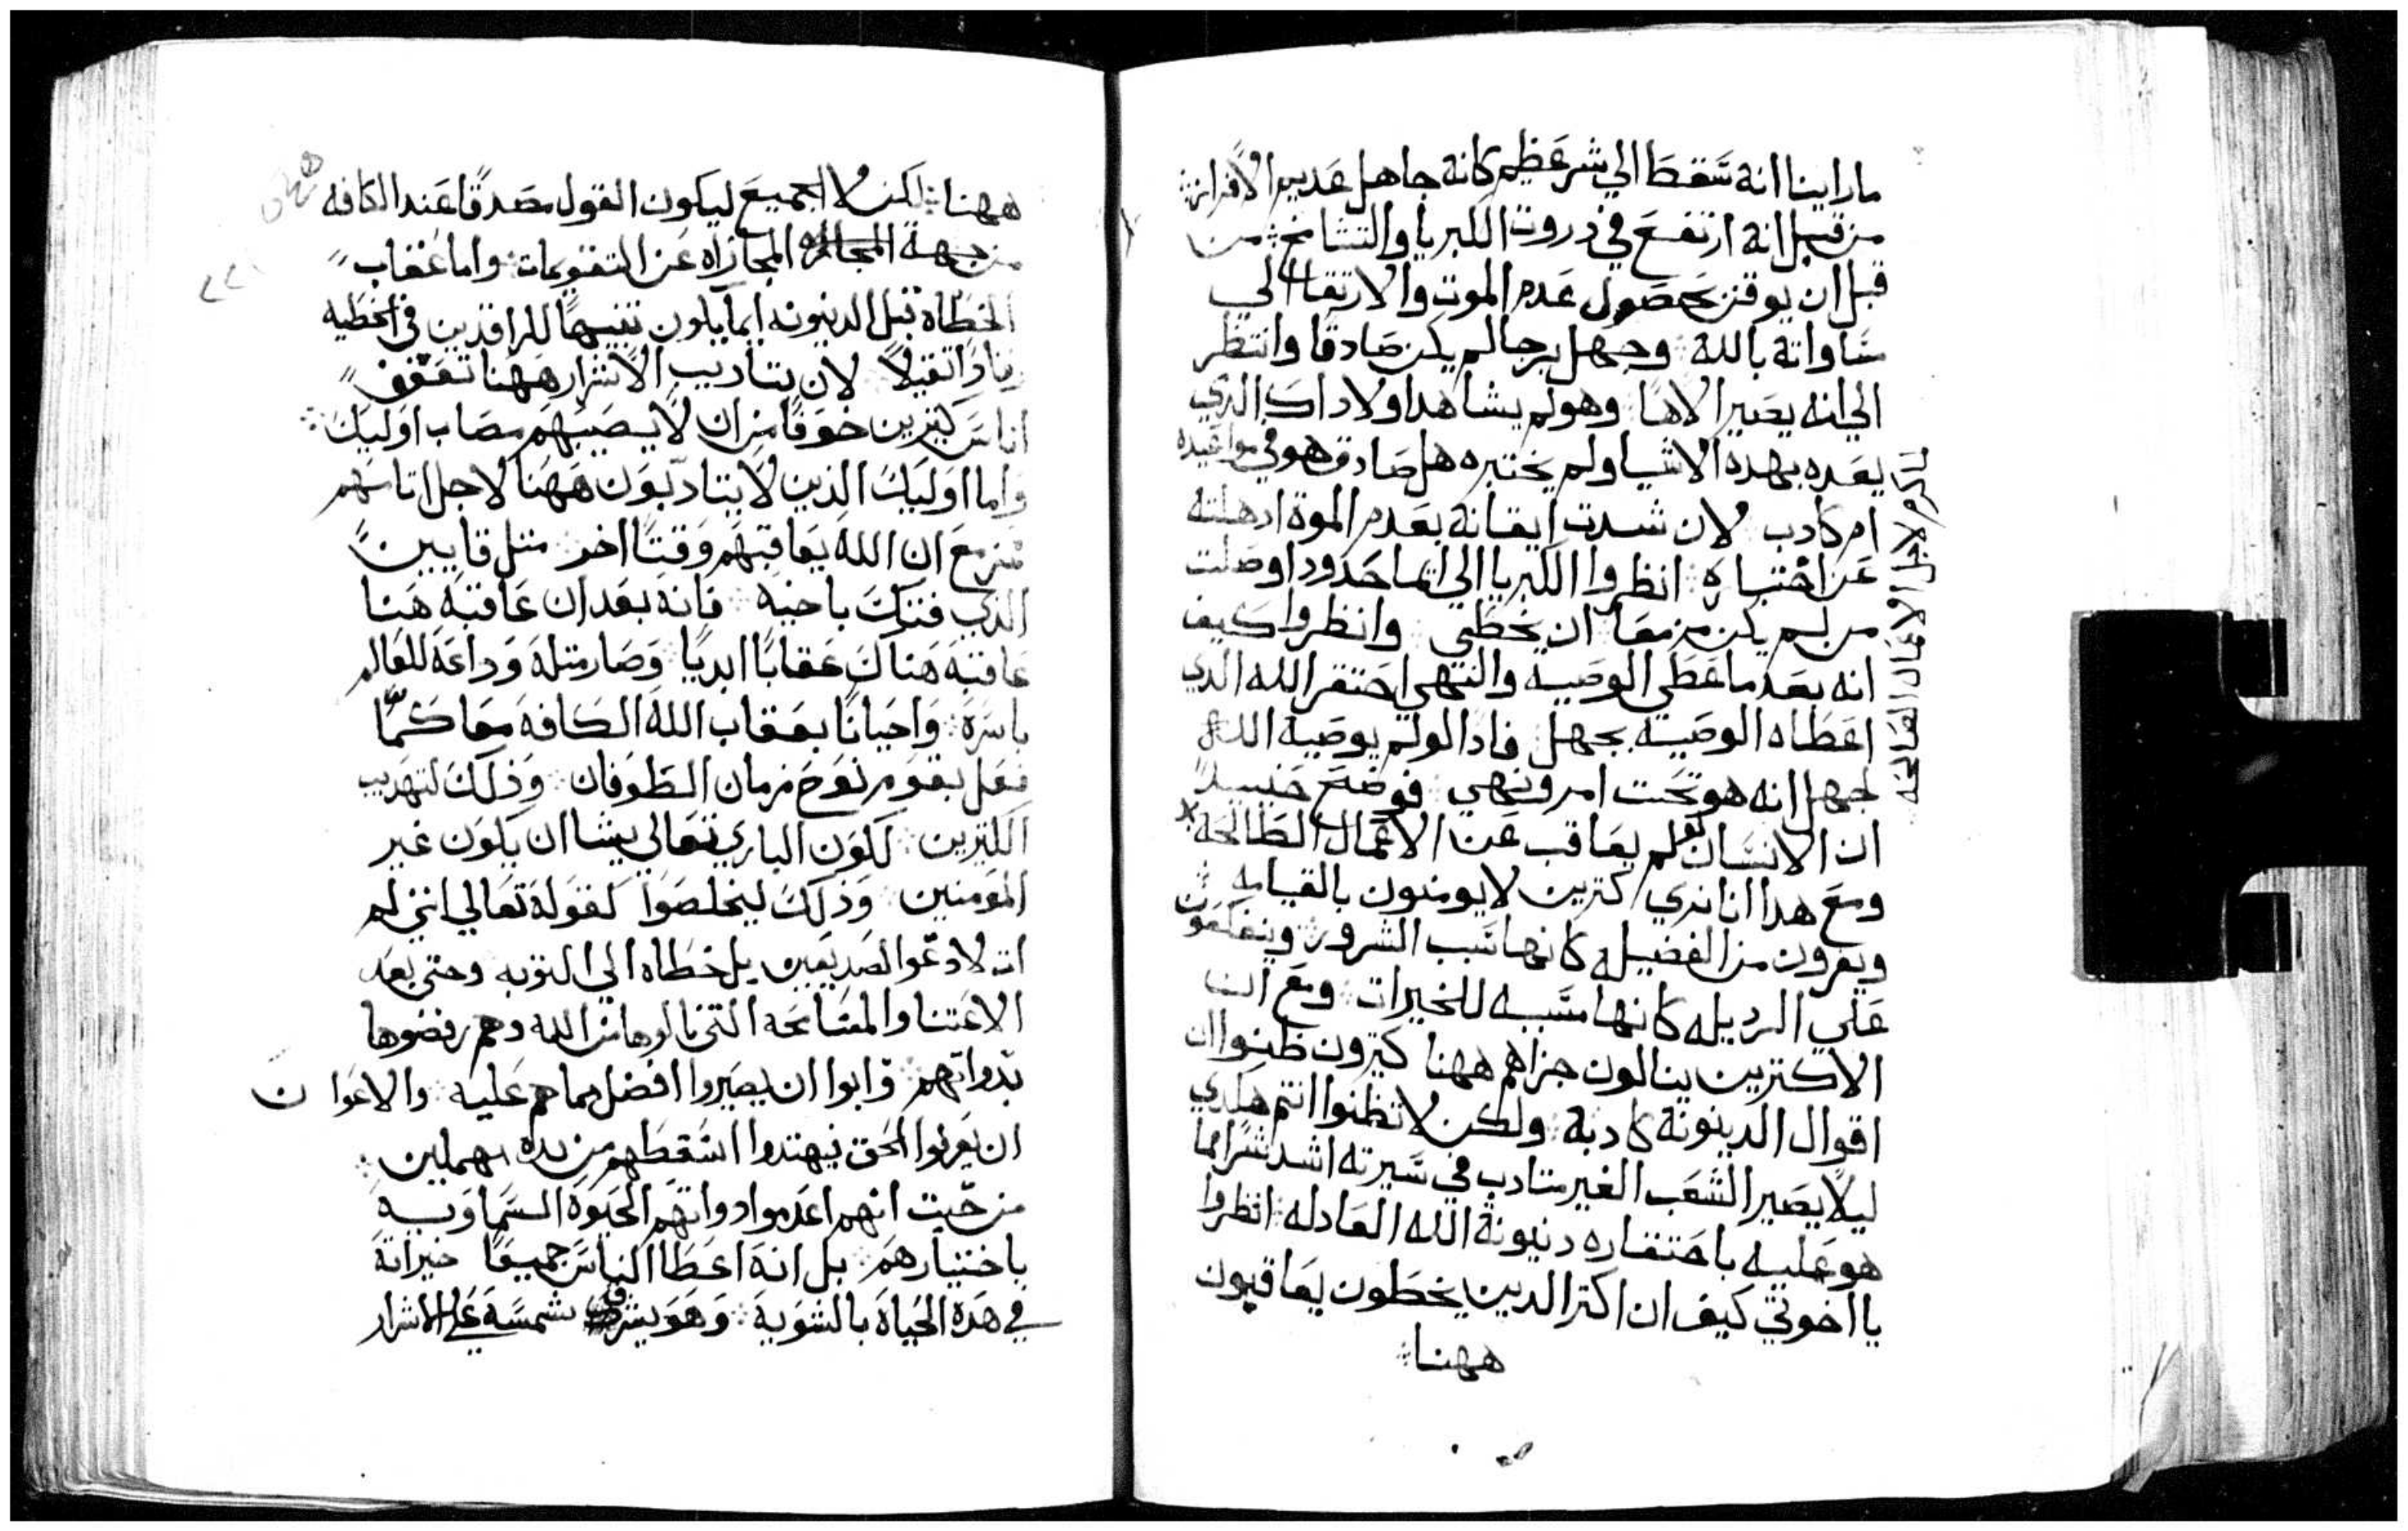 ماراينا انه سقط الي شر عظيم كانه جاهل عديم الافراز
من قبل انه ارتفع في دروت الكبريا والتشامخ من
قبل ان يوقن بحصول عدم الموت والارتقا الي
مساواته بالله وجهل برجا لم يكن صادقا وانتظر
الي انه يصير الاها وهو لم يشاهد اولا داك الدي
يعده بهده الاشيا ولم يختبره هل صادق هو في مواعيده
ام كادب لان شدت ايقانه بعدم الموة ادهلته
عن اختباره انظروا الكبريا الي ايما حدود اوصلت
من لم يكن مزمعا ان يخطي وانظروا كيف
انه بعد ما عطي الوصيه والنهي احتقر الله الدي
اعطاه الوصيه بجهل فاد الو لم يوصيه الله
لجهل انه هو تحت امر ونهي فوضح حينيدا
ان الانسان لو لم يعاقب عن الاعمال الطالحه
ومع هدا انا نري كترين لا يومنون بالقيامه
ويفرون من الفضيله كانها سبب الشرور وينعكفون
علي الرديله كانها مسببه للخيرات ومع ان
الاكترين ينالون جزاهم ههنا كترون ظنوا ان
اقوال الدينونة كادبة ولكن لا تظنوا انتم هكدي
ليلا يصير الشعب الغير متادب في سيرته اشد شرا مما
هو عليه باحتقاره دينونة الله العادله انظروا
يا اخوتي كيف ان اكتر الدين يخطون يعاقبون
ههنا
لما كرم لاجل الاعمال الصالحه
ههنا لكن لا الجميع ليكون القول مصدقا عند الكافه
من جهة المجازاه عن التقويمات واما عقاب
الخطاه قبل الدينونه انما يكون تنبيها للراقدين في الخطيه
رقادا تقيلا لان بتاديب الاشرار ههنا تعفف
اناس كتيرين خوفا من ان لا يصيبهم مصاب اوليك
واما اوليك الذين لا يتادبون ههنا لاجل اتامهم
مزمع ان الله يعاقبهم وقتا اخر متل قايين
الذي فتك باخيه فانه بعد ان عاقبه هنا
عاقبه هناك عقابا ابديا وصار متله وداعة للعالم
باسره واحيانا يعاقب الله الكافه معا كما
فعل بقوم نوح زمان الطوفان وذلك لتهديب
الكتيرين لكون الباري تعالي يشا ان يكون غير
المومنين وذلك ليخلصوا كقوله تعالي انني لم
ات لادعوا الصديقين بل خطاه الي التوبه وحتي بعد
الاعتنا والمسامحه التي نالوها من الله وهم رفضوها
بدواتهم وابوا ان يصيروا افضل مما هم عليه والاعوان
ان يعرفوا الحق فيهتدوا اسقطهم من يده بهملين
من حيت انهم اعدموا دواتهم الحيوة السماويه
باختيارهم بل انه اعطا الناس جميعا خيراته
في هده الحياة بالسويه وهو يشرق بشمسه علي الاشرار